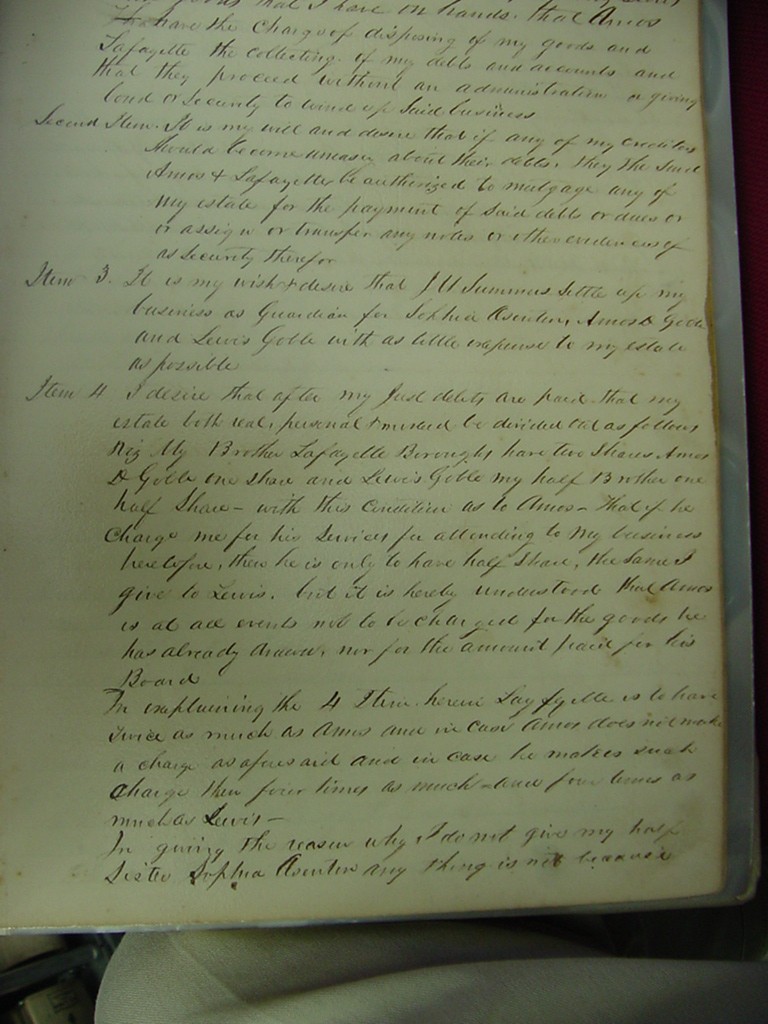 goods that I have on hands. that Amos
have the Charge of disposing of my goods and
Lafayette the collecting of my debts and accounts and
that they proceed without an administration or giving
bond or Security to wind up said business
Second Item. It is my will and desire that if any of my creditors
should become uneasy about their debts, they the said
Amos & Lafayette be authorized to mortgage any of
my estate for the payment of said debts or dues or
or assign or transfer any notes or other evidences of
as security therefor
Item 3. It is my wish & desire that J W Summers settle up my
business as Guardian for Sophia Asenten, Amos D Goble
and Lewis Goble with as little expense to my estate
as possible
Item 4 I desire that after my Just debts are paid that my
estate both real, personal & mixed be divided out as follows
Viz My Brother Lafayette Boroughs have two Shares Amos
D Goble one share and Lewis Goble my half Brother one
half Share - with this Condition as to Amos - that if he
Charge me for his Services for attending to my business
heretofore, then he is only to have half Share, the same I
give to Lewis. but it is hereby understood that Amos
is at all events not to be charged for the goods he
has already drawn, nor for the amount paid for his
Board
In explaining the 4 Item herein Layfyette is to have
twice as much as Amos and in case Amos does not make
a charge as aforesaid and in case he makes such
Charge then four times as much - and four times as
much as Lewis -
In giving the reason why I do not give my half
Sister Sophia Asenten any thing is not because